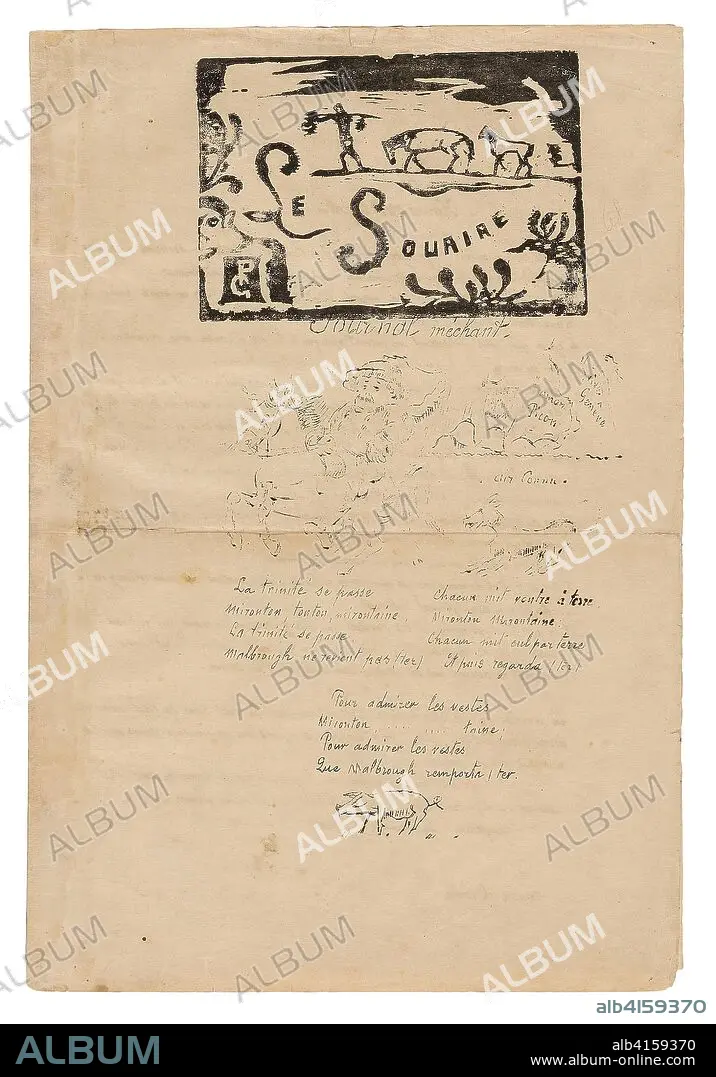 LE
SOURIRE
PG
Journal méchant.
Picon
Genièvre
air Connu.
La trinité se passe
Mironton tonton, mirontaine,
La trinité se passe
Malbrough ne revient pas (ter)
Chacun mit ventre à terre,
Mironton Mirontaine;
Chacun mit cul par terre
Et puis regarda (ter)
Pour admirer les vestes
Mironton, ..... ..... taine;
Pour admirer les vestes
Que Malbrough remporta (ter.
alb4159370
ALBUM
alb4159370
www.album-online.com